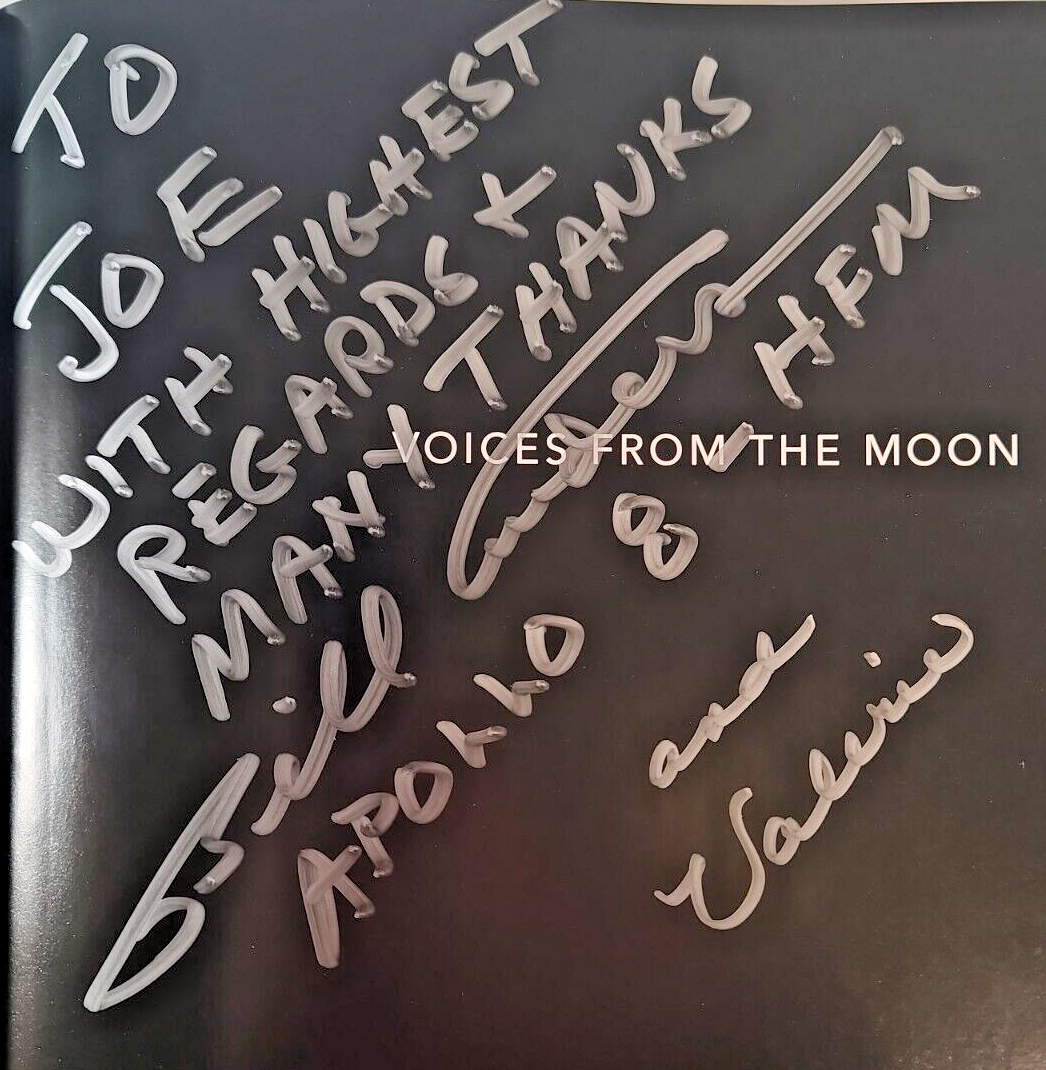 TO
JOE
WITH HIGHEST
REGARDS +
MANY THANKS
Bill Anders
APOLLO 8 HFM
and
Valerie
VOICES FROM THE MOON